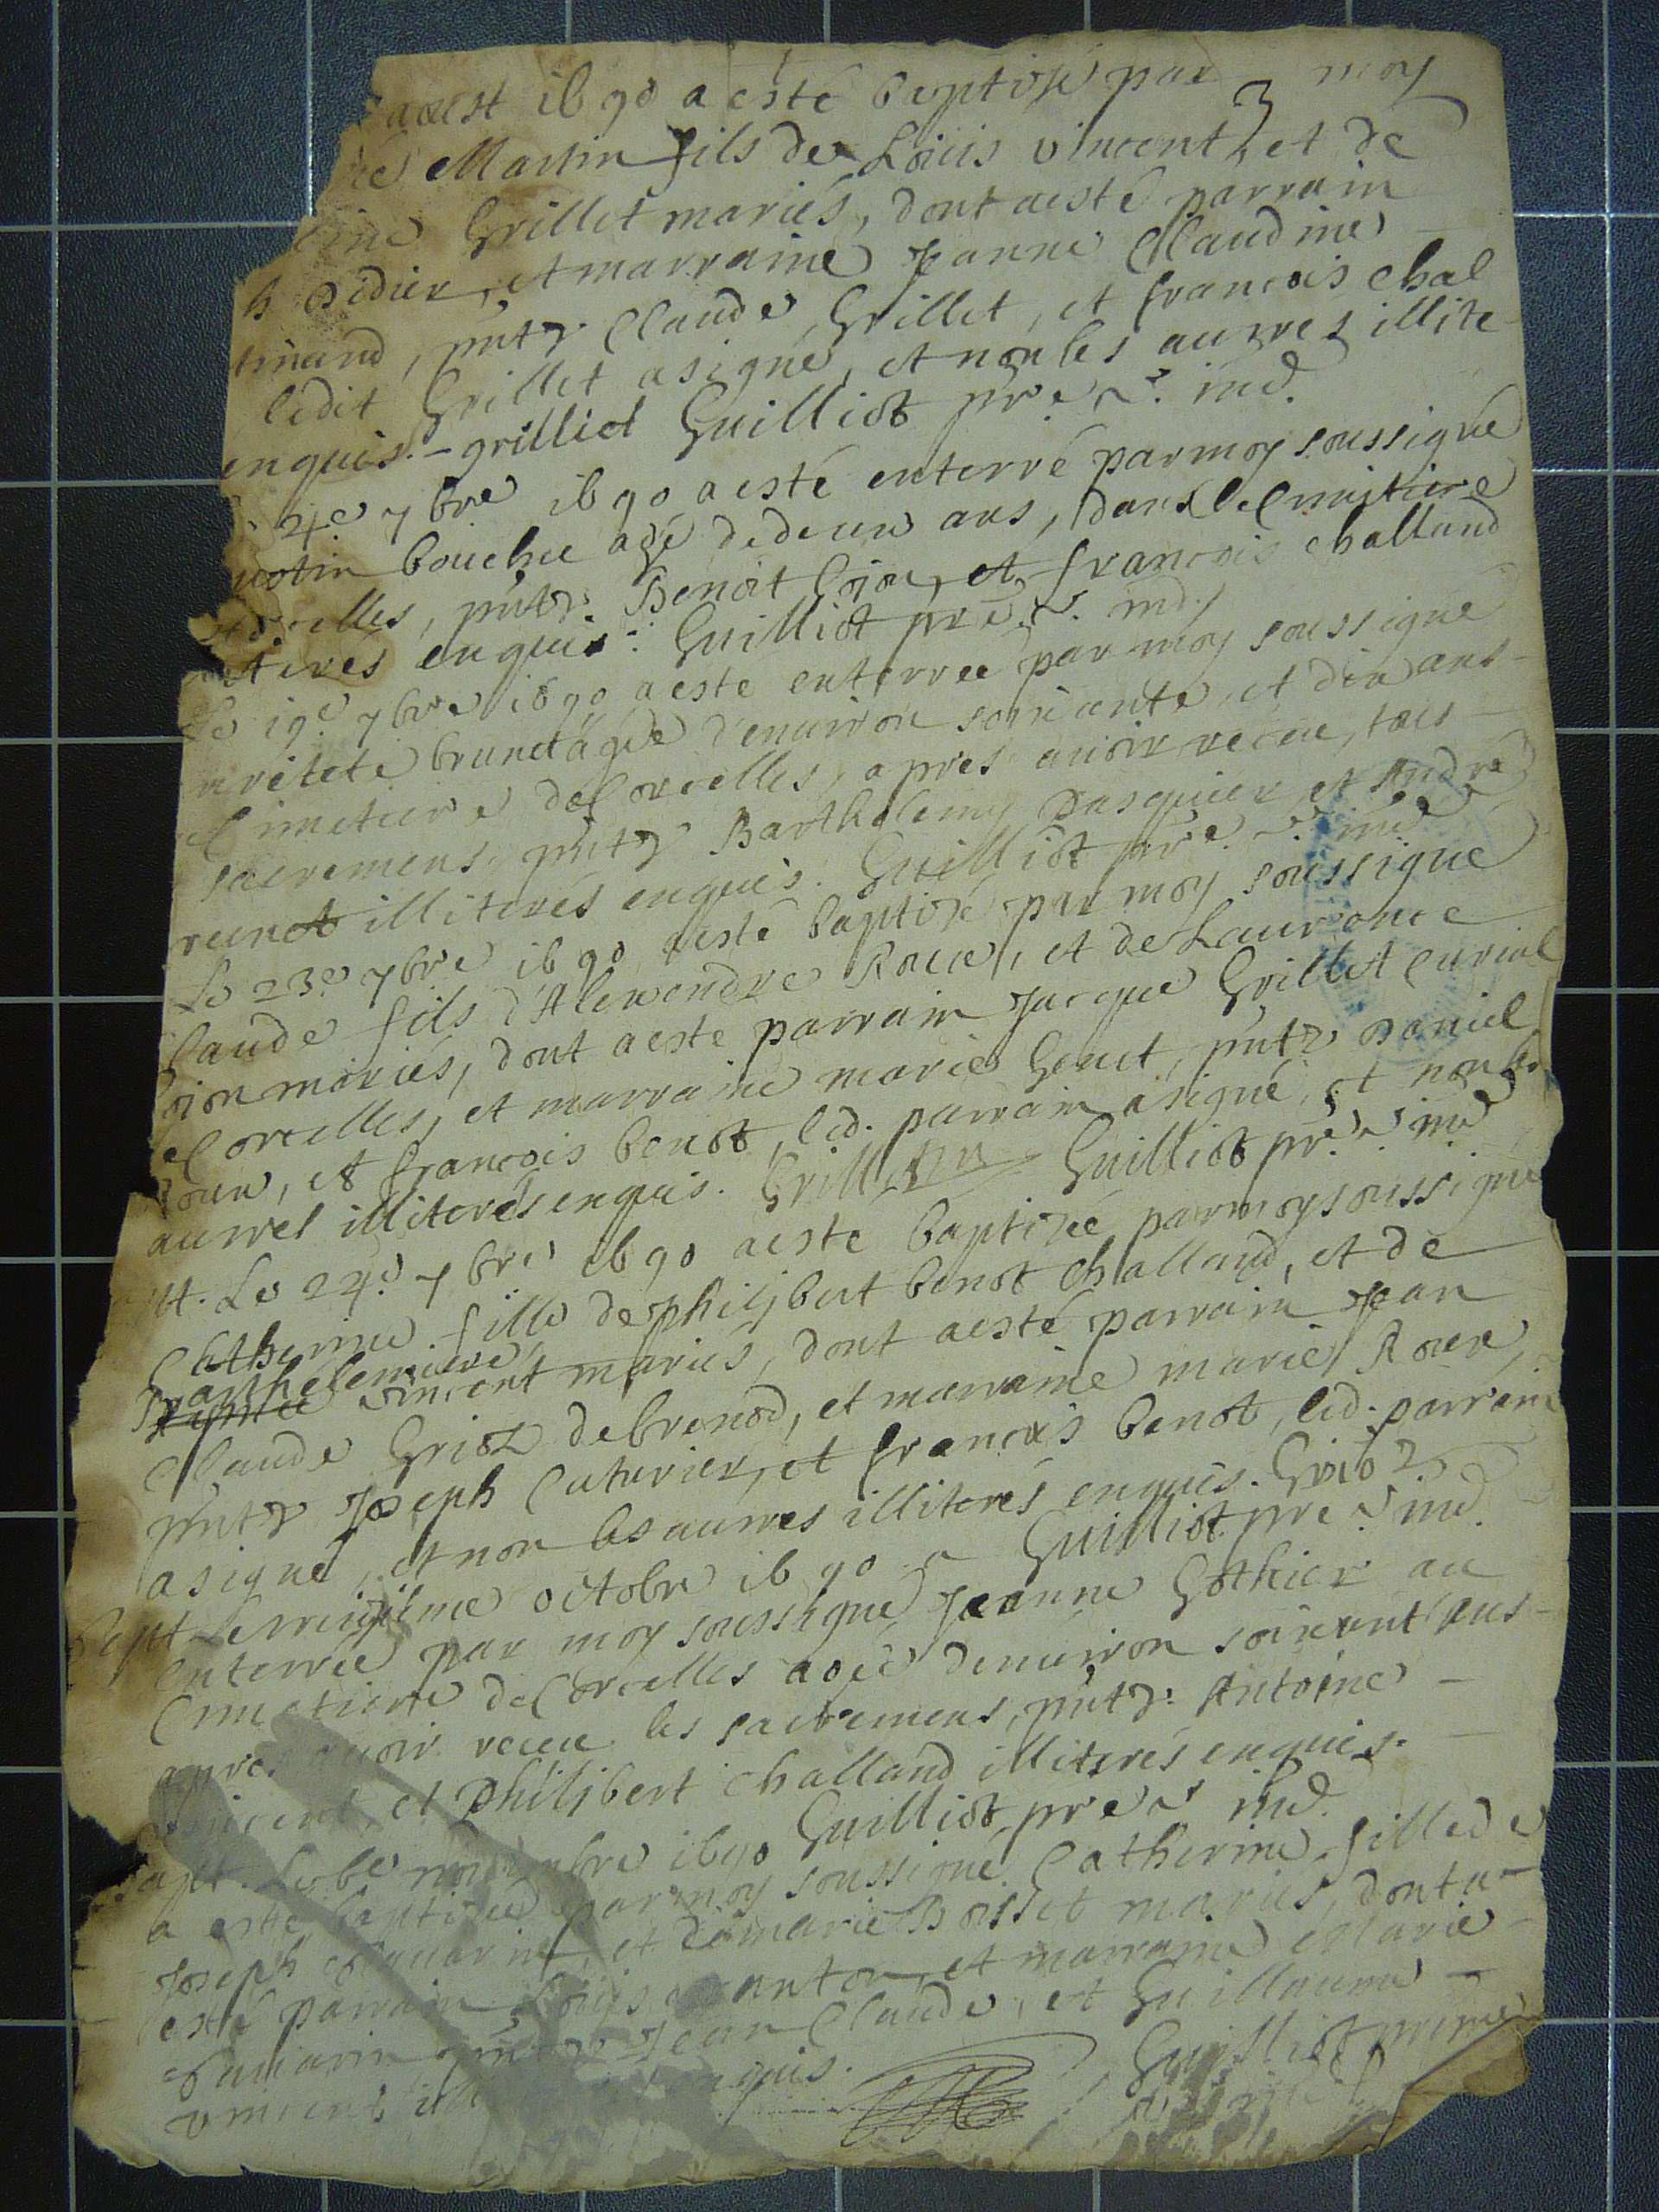 aoust 1690 a esté baptisé par moy
Martin fils de Loüis vincent, et de
Grillet mariés, dont a esté parrain
h didier, et marraine Jeanne Claudine
, pntz Claude Grillet, et francois Chal
ledit Grillet a signé, et non les autres illite
enquis. - grilliet Guilliot pre v. ind.
4e 7bre 1690 a esté enterré par moy soussigné
bouchu agé de deux ans, dans le Cimitiere
elles, pntz. Benoit et francois challand
teres enquis. Guilliot pre v. ind.
Le 19e 7bre 1690 a esté enterree par moy soussigné
brunet agée d'enuiron soixante et dix ans
Cimetiere de Corcelles, apres auoir recue, tous
sacremens, pntz Barthelemy pasquier et André
illiterés enquis. Guilliot pre v. ind
Le 23e 7bre 1690 a esté baptisé par moy soussigné
Claude fils d'Alexandre Roux, et de Laurance
mariés, dont a esté parrain Jacque Grillet Curial
Corcelles, et marraine marie Genet, pntz Daniel
roux, et francois benot, led. parrain a signé, et non les
autres illiterés enquis. Grillet Guilliot pre v. ind
pt. Le 24e 7bre 1690 a esté baptizée par moy soussigné
Catherine fille de philibert benot Challand, et de
barthelemiere vincent mariés, dont a esté parrain Jean
Claude Grioz de brenod, et marraine marie Roux,
pntz Joseph Cuturier, et francois benot, led. parrain
a signé, et non les autres illiterés enquis. Grioz
Guilliot pre v. ind.
Sept. Le octobre 1690 a
enterrée par moy soussigné Jeanne Gothier au
Cimetiere de Corcelles agée denuiron soixant ans
apres auoir receue les sacremens, pntz. Antoine
vincent, et Philibert Challand illiterés enquis.
Guilliot pre v. ind.
Bapt. Le 6e nouembre 1690
a esté baptisée par moy soussigné Catherine fille de
Joseph et de marie Bosset mariés, dont a
esté parrain Loüis et marraine Marie
Jean Claude, et Guillaume
vincent ill enquis. Guilliot